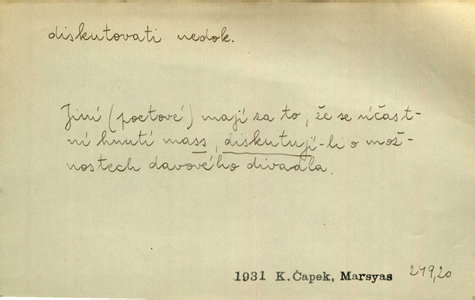 diskutovati nedok.
Jiní (poetové) mají za to, že se účast-
ní hnutí mass, diskutují-li o mož-
nostech davového divadla.
1931 K.Čapek, Marsyas 219,20